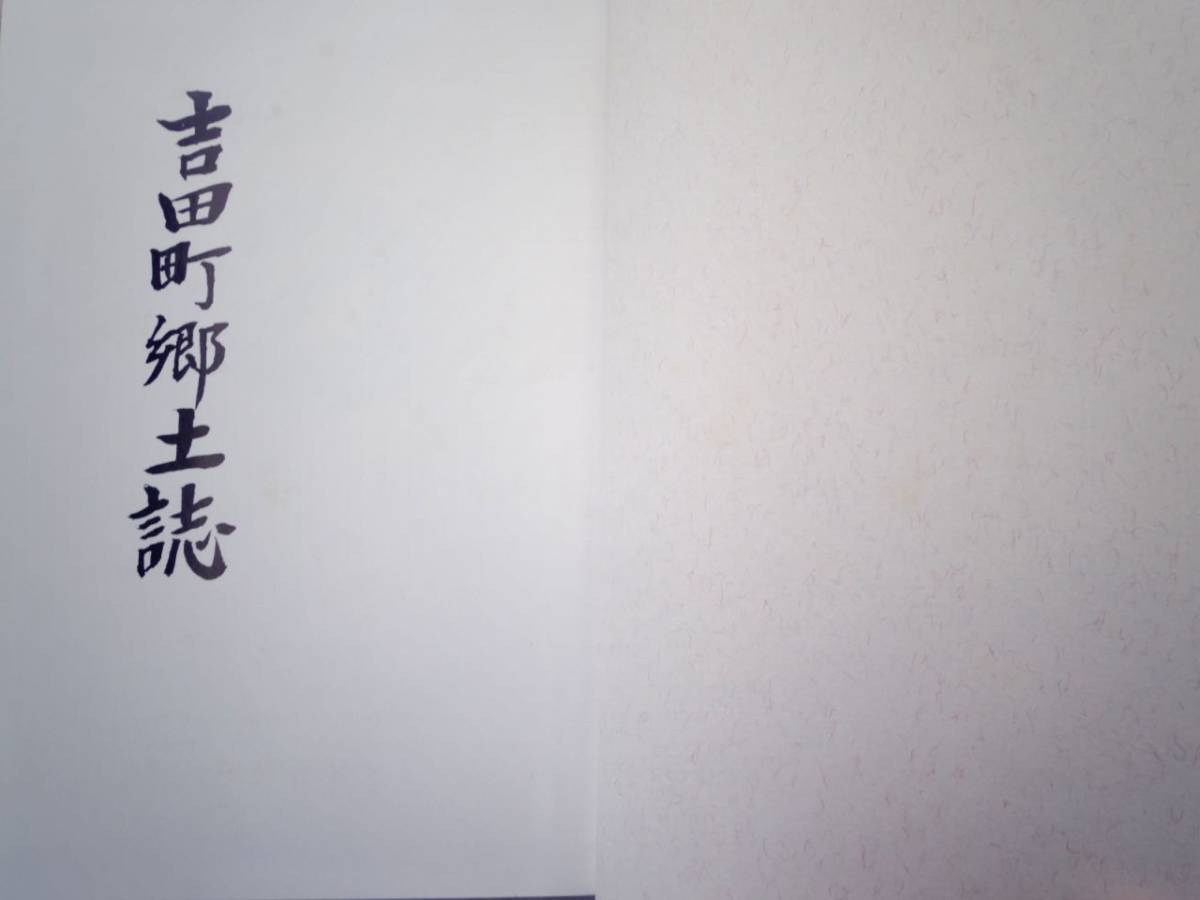 吉田町郷土誌